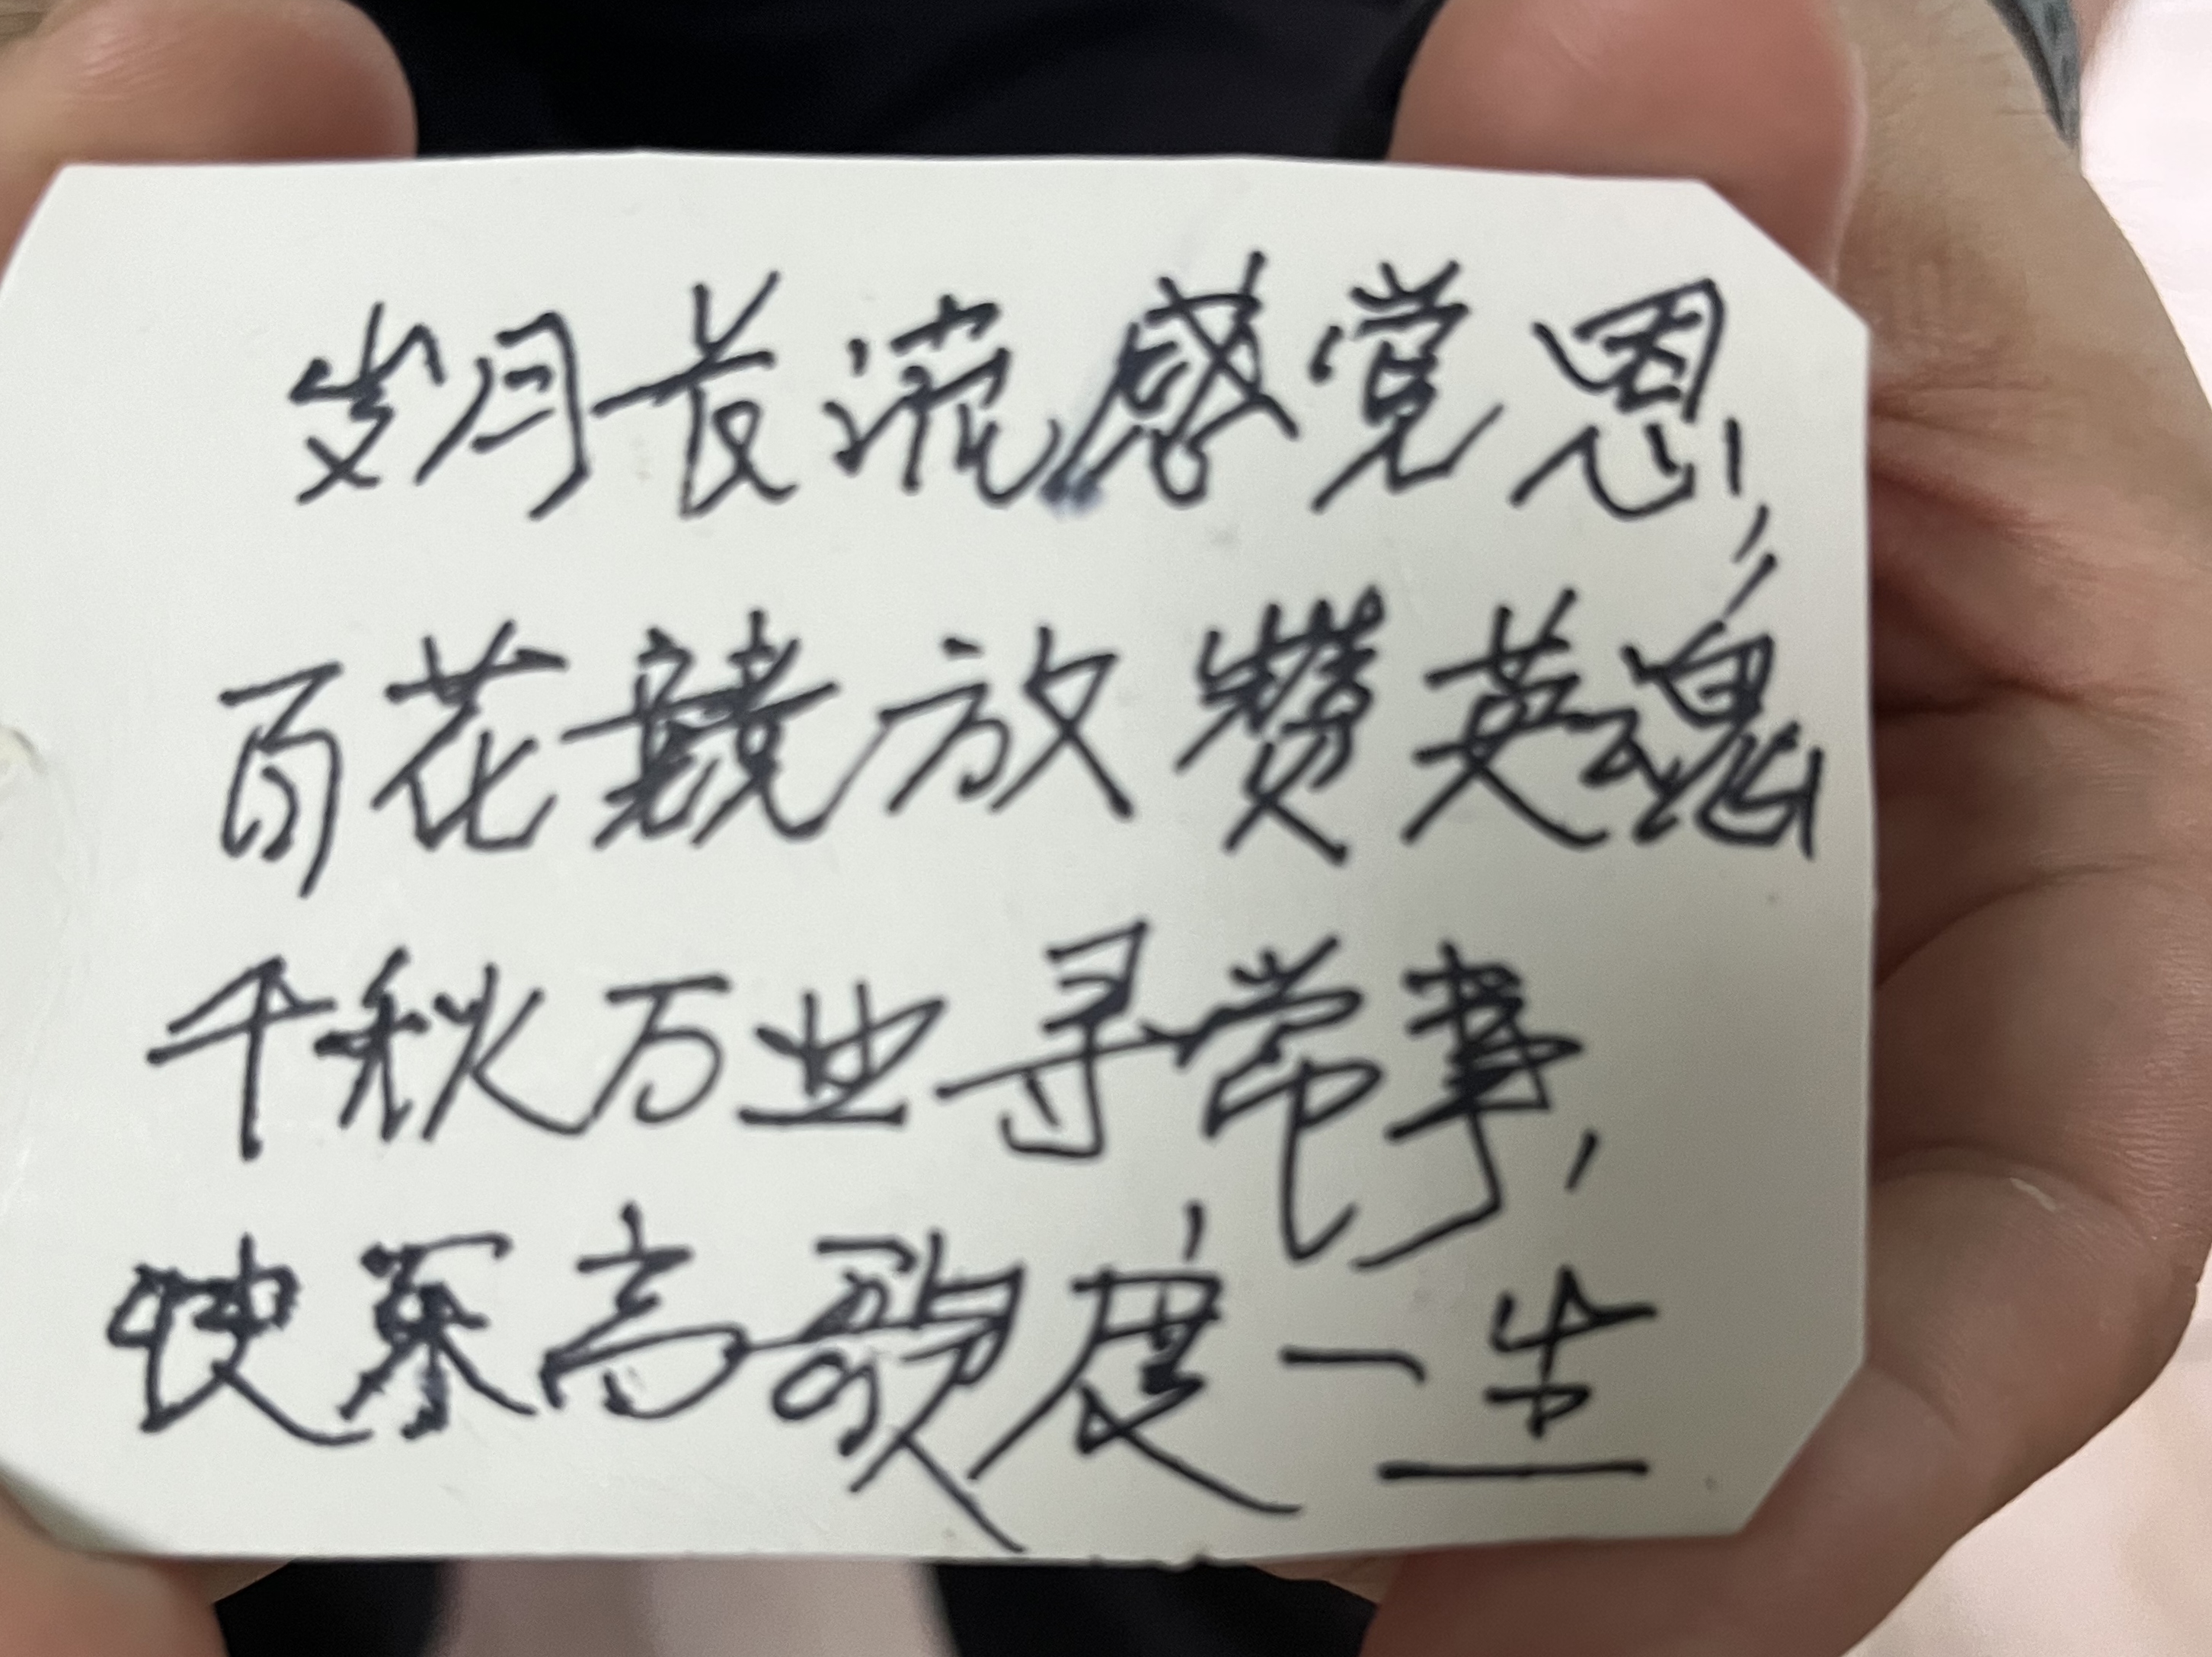 岁月长流感党恩，
百花競放赞英魂
千秋万业寻常事，
快乐高歌度一生